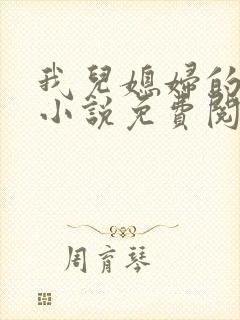 我兒媳婦的
小說免費閱
周育琴